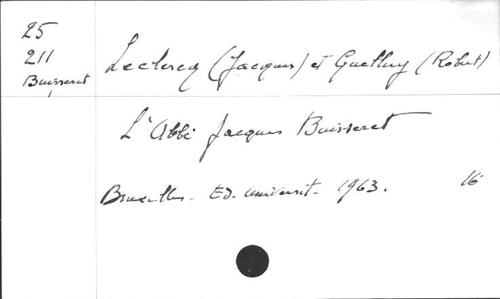 25
211
Buisseret
Leclercq (Jacques) et Guelluy (Robert)
L'Abbé Jacques Buisseret
Bruxelles. Ed. universit. 1963. 16